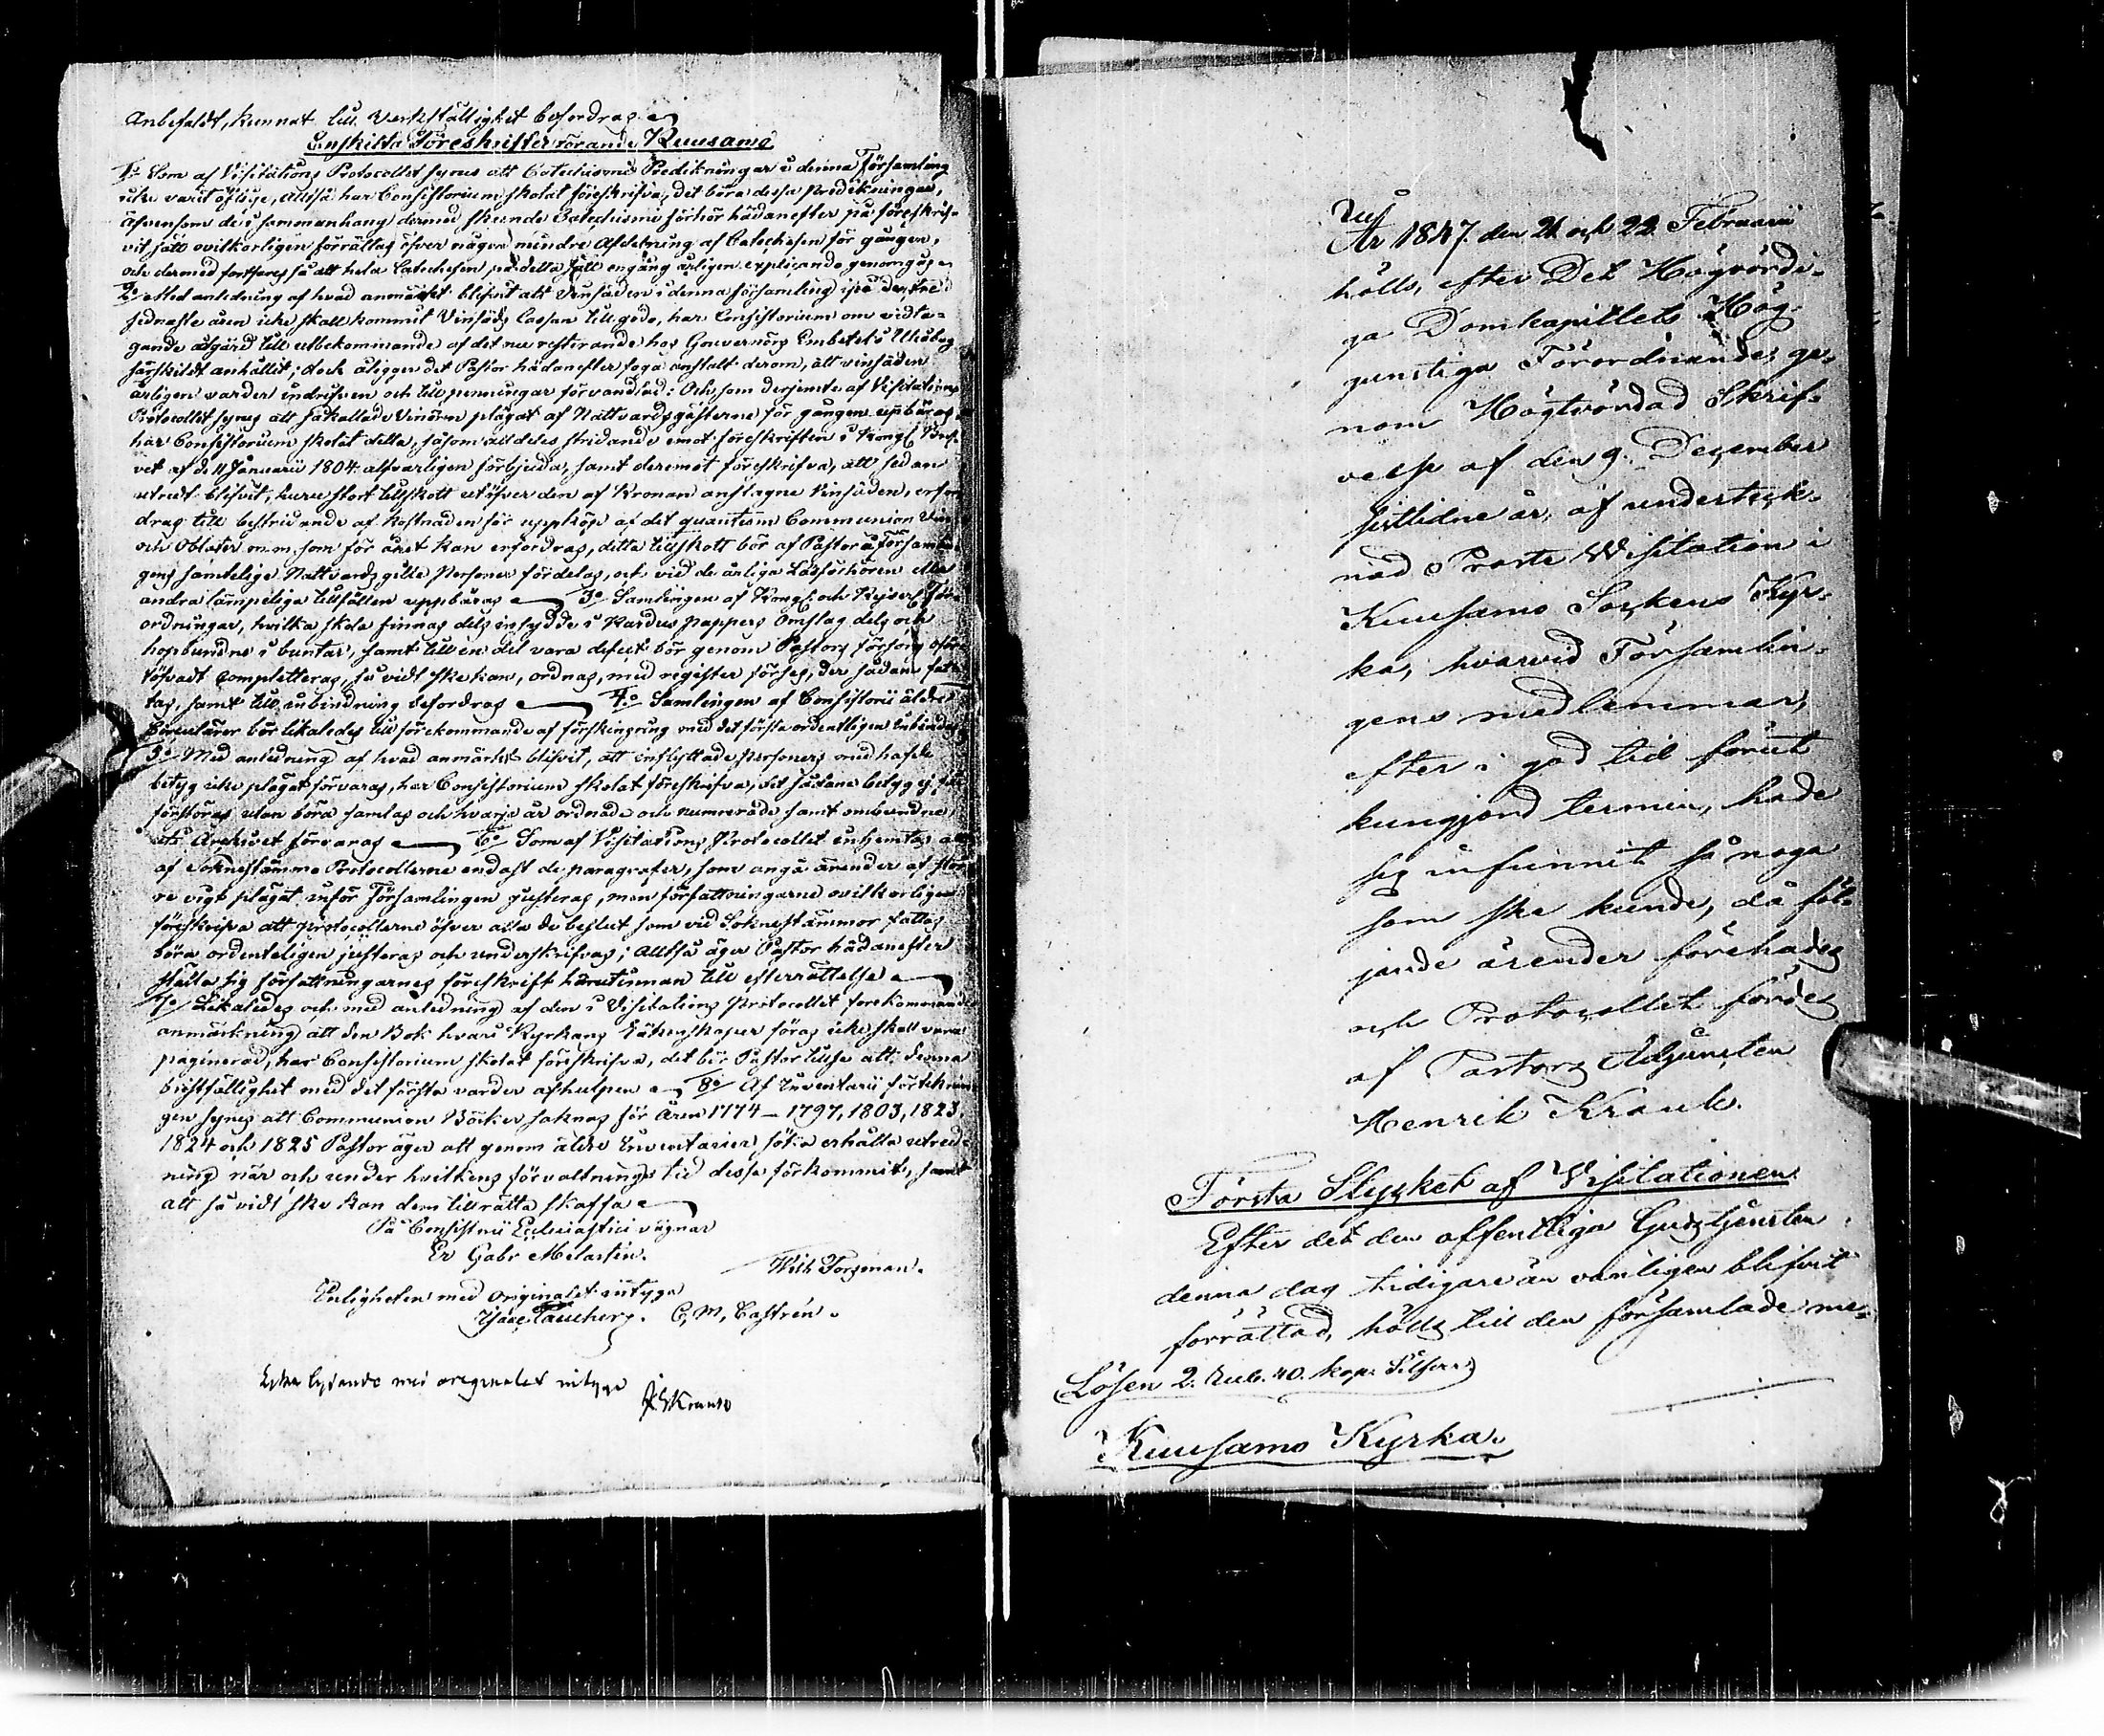 Anbefaldt, kunnat till Verkställighet befordras.
Enskilta Föreskrifter rörande Kuusamo
1o Som af Visitations Protocollet synes att Catechismi Predikningar i denna Församling
icke varit öflige, alltså har Consistorium skolat föreskrifva, det böra dessa predikningar,
äfvensom de i sammanhang dermed skeende Catechismi förhör hädanefter på föreskrif-
vit sätt ovilkorligen förrättas öfver någon mindre Afdelning af Catechesen för gången,
och dermed fortfares så att hela Catechesen på detta sätt engång årligen explicando genomgås
2o Med anledning af hvad anmärkt blifvit att Vinsäden i denna församling ifrå de tre
sednaste åren icke skall kommit Vinsäds Cassan till godo, har Consistorium om vidta-
gande åtgärd till utbekommande af det nu resterande hos Gouvernörs Embetet i Uleåborg
särskildt anhållit; dock åligger det Pastor hädanefter foga anstalt derom, att vinsäden
årligen varder indrifven och till penningar förvandlad: Och som derjemte af Visitations
Protocollet synes att såkallade Vinören plägat af Nattvardsgästerne för gången uppbäras,
har Consistorium skolat detta, såsom alldeles stridande emot föreskriften i Kongl Bref-
vet af d. 11 Januarii 1804 alfvarligen förbjuda, samt deremot föreskrifva, att sedan
utredt blifvit, huru stort tillskott utöfver den af Kronan anslagne Vinsäden, erfor
dras till bestridande af kostnaden för uppköp af det quantum Communion Vin
och Oblater m.m. som för året kan erfordras, detta tillskott bör af Pastor å Församlin
gens samtelige Nattvards gilde Personer fördelas, och vid de årliga Läsförhören eller
andra lämpeliga tillfällen uppbäras 3o Samlingen af Kongl. och Kejserl. För-
ordningar, hvilka skola finnas dels insydde i Kardus pappers Omslag dels och
hopbundne i buntar, samt till en del vara defect bör genom Pastors försorg oför-
töfvadt completteras, så vidt ske kan, ordnas, med register förses, der sådant fat-
tas, samt till inbindning befordras 4o Samlingen af Consistorii äldre
Cirkulärer bör likaledes till förekommande af förskingring med det första ordentligen inbindas
5o Med anledning af hvad anmärkt blifvit, att inflyttade personers medhafde
betyg icke plägat förvaras, har Consistorium skolat föreskrifva, det sådane betyg ej få
förstöras utan böra samlas och hvarje år ordnade och numrerade samt ombundne
uti Archivet förvaras 6o Som af Visitations Protocollet inhemtas att
af Socknestämmo Protocollerne endast de paragrafer, som angå ärender af stör-
re vigt plägat inför Församlingen justeras, men författningarne ovilkorligen
föreskrifva att protocollerne öfver alla de beslut som vid Sockne stämmor fattas
böra ordenteligen justeras och underskrifvas; alltså äger Pastor hädanefter
ställa sig författningarnes föreskrift härutinnan till efterrättelse
7o Likaledes och med anledning af den i Visitations Protocollet förekommande
anmärkning att den Bok hvari Kyrkans Räkenskaper föras icke skall vara
paginerad, har Consistorium skolat föreskrifva, det bör Pastor tillse att denna
bristfällighet med det första varder afhulpen 8o Af Inventarii förteknin
gen synes att Communion Böcker saknas för Åren 1774-1797, 1803, 1823,
1824 och 1825 Pastor äger att genom äldre Inventarier söka erhålla utred-
ning när och under hvilkens förvaltnings tid dessa förkommit, samt
att så vidt ske kan dem tillrätta skaffa
På Consistorii Ecclesiastici vägnar
Er Gabr Melartin.
Wilh Forsman.
Enligheten med originalet intyga
C, M, Castrén.
Lika lydande med originalet intyga
År 1847. den 21 och 22 Februarii
hölls, efter Det Högvördi-
ga Domkapitlets Hög-
gunstiga Förordnande ge-
nom Högtvördad Skrif-
velse af den 9. December
sistlidne år, af underteck-
nad Proste Visitation i
Kuusamo Sockens Kyr-
ka, hvarvid Församlin-
gens medlemmar,
efter i god tid förut
kungjord termin, hade
sig infunnit så noga
som ske kunde, då föl-
jande ärender förehades
och Protocollet fördes
af Pastors Adjuncten
Henrik Krank.
Första Stycket af Visitationen.
Efter det den offentliga Gudstjensten
denna dag tidigare än vanligen blifvit
förrättad, hölls till den församlade me-
Lösen 2. Rub. 40. kop. Silfver
Kuusamo Kyrka.